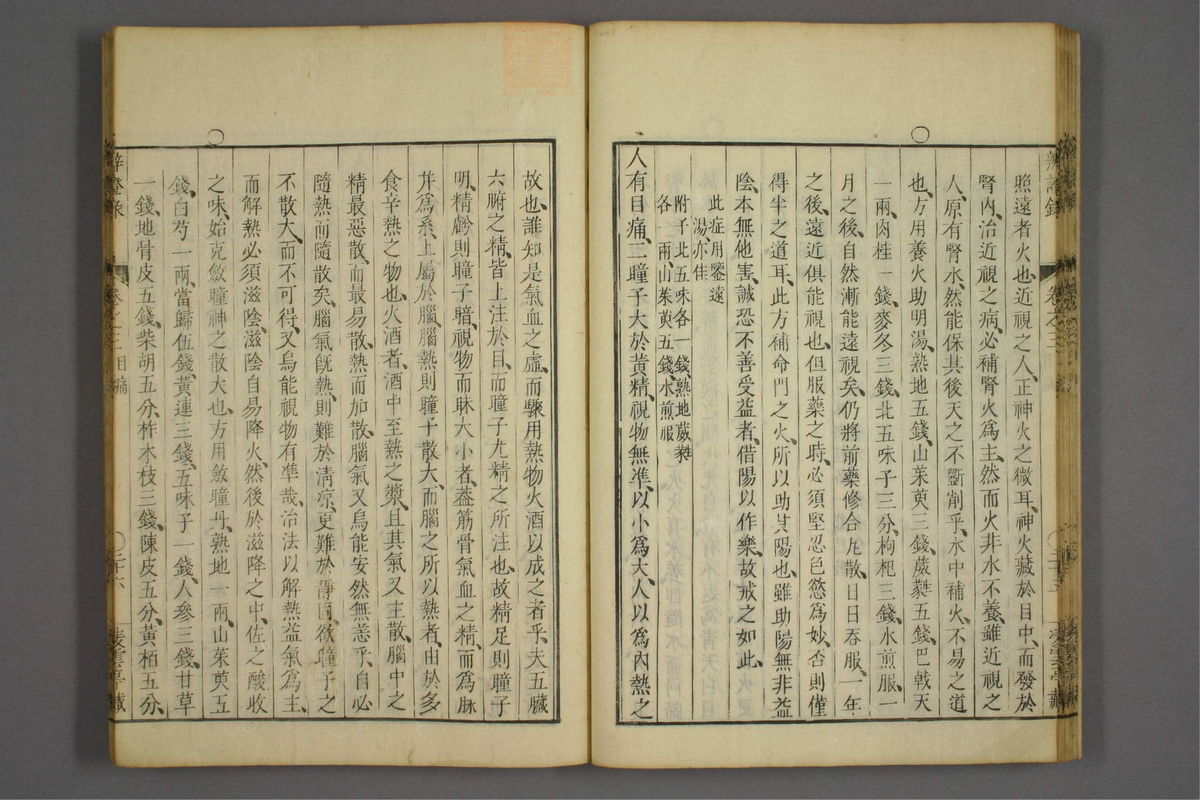 照遠者火也、近視之人、正神火之微耳、神火藏於目中、而發於
腎內、治近視之病、必補腎火爲主、然而火非水不養、雖近視之
人、原有腎水、然能保其後天之不斲削乎、水中補火、不易之道
也、方用養火助明湯、熟地五錢、山茱萸三錢、葳蕤五錢、巴戟天
一兩、肉桂一錢、麥冬三錢、北五味子三分、枸杞三錢、水煎服、一
月之後、自然漸能遠視矣、仍將前藥修合丸散、日日吞服、一年
之後、遠近俱能視也、但服藥之時、必須堅忍色慾爲妙、否則僅
得半之道耳、此方補命門之火、所以助其陽也、雖助陽無非益
陰、本無他害、誠恐不善受益者、借陽以作樂、故戒之如此、
此症用鑒遠
湯亦佳
附子北五味各一錢、熟地葳蕤
各一兩、山茱萸五錢、水煎服
人有目痛、二瞳子大於黃精、視物無準、以小爲大、人以爲內熱之
故也、誰知是氣血之虛、而驟用熱物火酒以成之者乎、夫五臟
六腑之精、皆上注於目、而瞳子尤精之所注也、故精足則瞳子
明、精虧則瞳子暗、視物而昧大小者、蓋筋骨氣血之精、而爲脉
并爲系、上屬於腦、腦熱則瞳子散大、而腦之所以熱者、由於多
食辛熱之物也、火酒者、酒中至熱之漿、且其氣又主散、腦中之
精、最惡散、而最易散、熱而加散、腦氣又烏能安然無恙乎、自必
隨熱而隨散矣、腦氣旣熱、則難於清涼、更難於靜固、欲瞳子之
不散大、而不可得、又烏能視物有準哉、治法以解熱益氣爲主、
而解熱必須滋陰、滋陰自易降火、然後於滋降之中、佐之酸收
之味、始克斂瞳神之散大也、方用斂瞳丹、熟地一兩、山茱萸五
錢、白芍一兩、當歸伍錢、黃連三錢、五味子一錢、人參三錢、甘草
一錢、地骨皮五錢、柴胡五分、柞木枝三錢、陳皮五分、黃栢五分、
卷之三 目痛
二十六